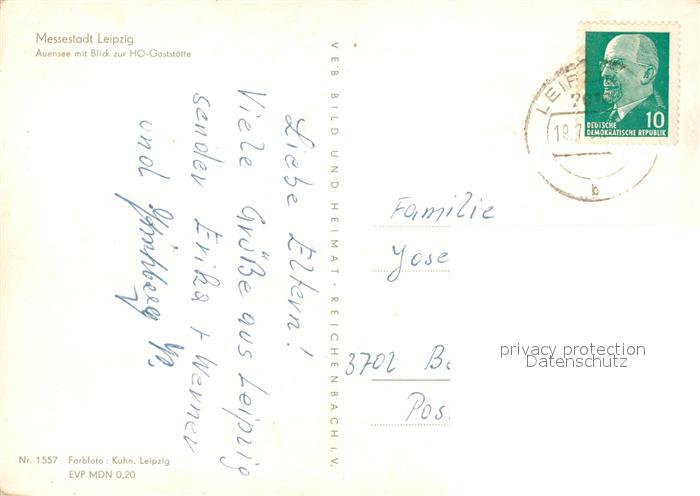 Messestadt Leipzig
Auensee mit Blick zur HO-Gaststätte
Liebe Eltern!
Viele Grüße aus Leipzig
senden Erika + Werner
und
VEB BILD UND HEIMAT · REICHENBACH i. V.
LEIPZ
701
19.7
b
10
DEUTSCHE
DEMOKRATISCHE REPUBLIK
Familie
Jose
3702 Be
Pos.
privacy protection
Datenschutz
Nr. 1557 Farbfoto: Kuhn, Leipzig
EVP MDN 0,20